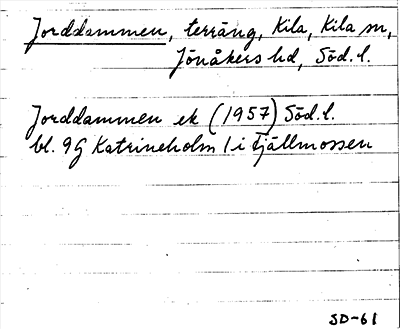 Jorddammen, terräng, Kila, Kila sn,
Jönåkers hd, Söd. l.
Jorddammen ek (1957) Söd. l.
bl. 9G Katrineholm / i Fjällmossen
SD-61